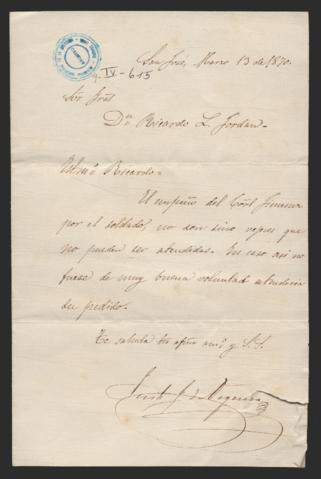 San José, Marzo 13 de 1870.
IV-615
Sor Gral
Dn Ricardo L. Jordan-
Estmo Ricardo-
El empeño del Cnel
por el soldado, no son sino vejeses que
no pueden ser atendidas. En caso asi no
fuese de muy buena voluntad atenderia
su pedido.
Te saluda tu afmo am.o y S. S.
Justo J. de Urquiza